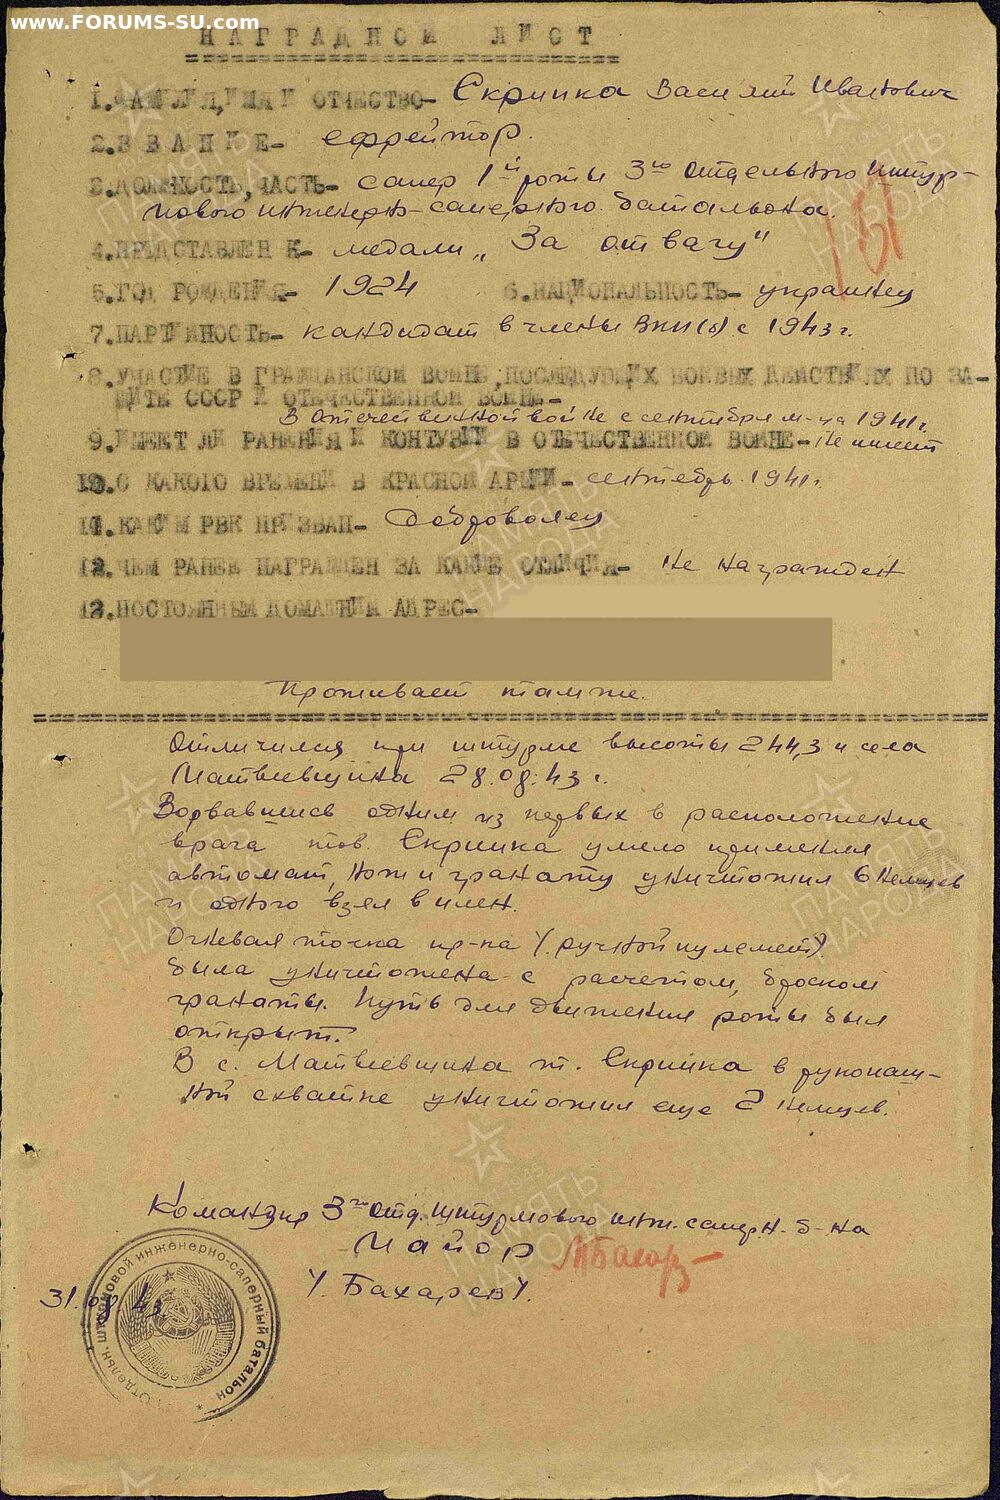 www.FORUMS-SU.com
НАГРАДНОЙ ЛИСТ
1.ФАМИЛИЯ,ИМЯ И ОТЧЕСТВО- Скрипка Василий Иванович
2.ЗВАНИЕ- ефрейтор.
3.ДОЛЖНОСТЬ,ЧАСТЬ- сапер 1й роты 3го отдельного штур-
мового инженерно-саперного батальона.
4.ПРЕДСТАВЛЕН К- медали „За отвагу"
5.ГОД РОЖДЕНИЯ- 1924 6.НАЦИОНАЛЬНОСТЬ- украинец
7.ПАРТИЙНОСТЬ- кандидат в члены ВКП(б) с 1943 г.
8.УЧАСТИЕ В ГРАЖДАНСКОЙ ВОЙНЕ,ПОСЛЕДУЮЩИХ БОЕВЫХ ДЕЙСТВИЯХ ПО ЗА-
ЩИТЕ СССР И ОТЕЧЕСТВЕННОЙ ВОЙНЕ-
В Отечественной войне с сентября м-ца 1941 г.
9.ИМЕЕТ ЛИ РАНЕНИЯ И КОНТУЗИИ В ОТЕЧЕСТВЕННОЙ ВОЙНЕ- Не имеет
10.С КАКОГО ВРЕМЕНИ В КРАСНОЙ АРМИИ- сентябрь 1941 г.
11.КАКИМ РВК ПРИЗВАН- Доброволец
12.ЧЕМ РАНЕЕ НАГРАЖДЕН ЗА КАКИЕ ОТЛИЧИЯ- Не награжден
13.ПОСТОЯННЫЙ ДОМАШНИЙ АДРЕС-
Проживает там же.
Отличился при штурме высоты 244,3 и села
Матвиевщина 28.08.43 г.
Ворвавшись одним из первых в расположение
врага тов. Скрипка умело применяя
автомат, нож и гранату уничтожил 6 немцев
и одного взял в плен.
Огневая точка пр-ка /ручной пулемет/
была уничтожена с расчетом, броском
гранаты. Путь для движения роты был
открыт.
В с. Матвиевщина т. Скрипка в рукопаш-
ной схватке уничтожил еще 2 немцев.
Командир 3го Отд. штурмового инж. сапер.н. б-на
Майор
/Бахарев/.
31.08.43.
Отдельн. штурмовой инженерно-саперный батальон
ПАМЯТЬ НАРОДА